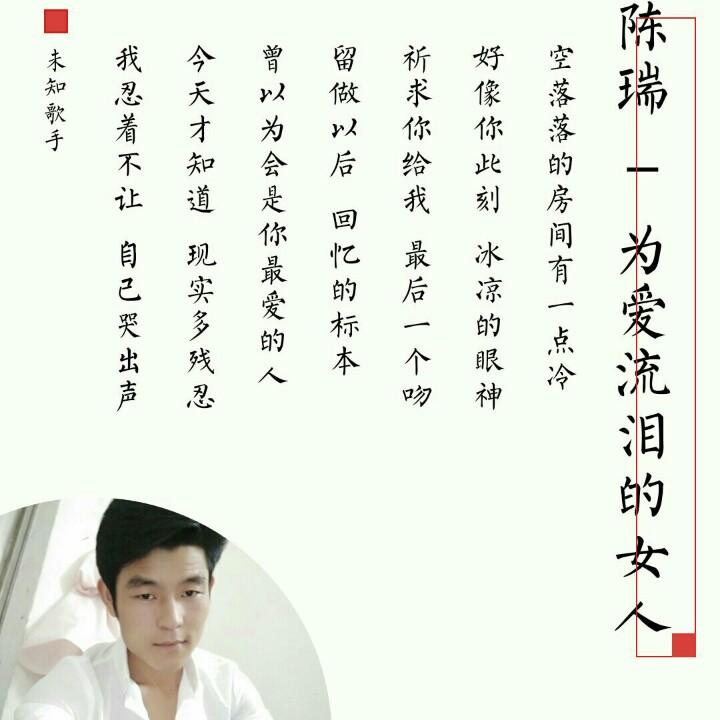 陈瑞 - 为爱流泪的女人
空落落的房间有一点冷
好像你此刻 冰凉的眼神
祈求你给我 最后一个吻
留做以后 回忆的标本
曾以为会是你最爱的人
今天才知道 现实多残忍
我忍着不让 自己哭出声
未知歌手